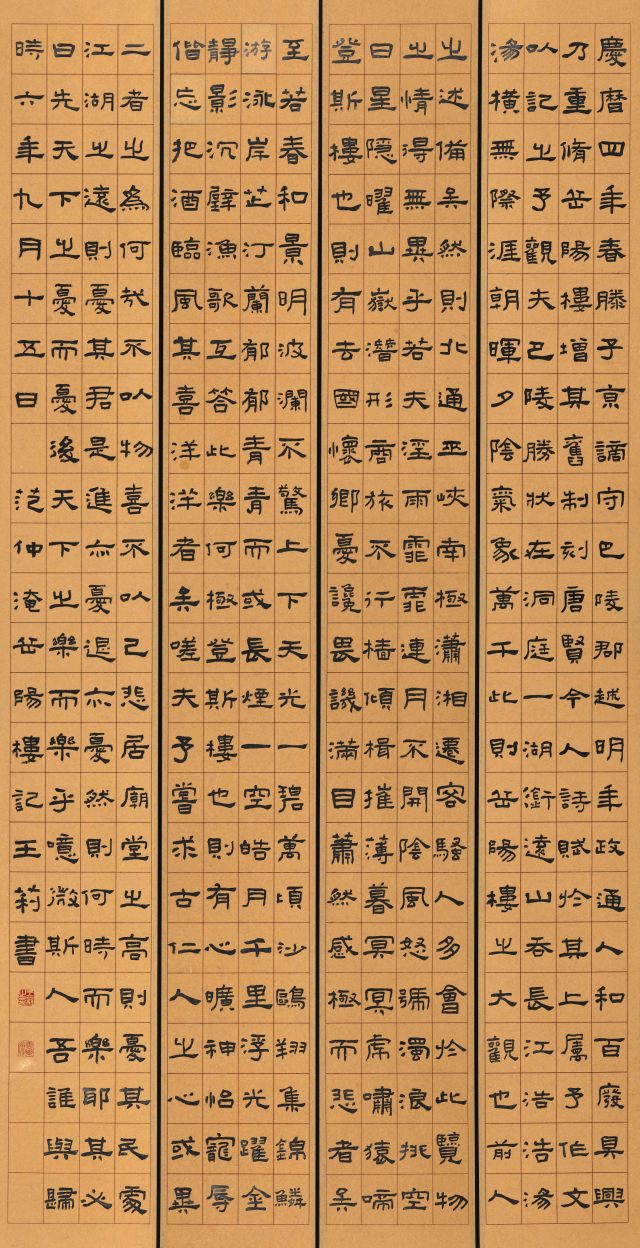 慶曆四年春滕子京謫守巴陵郡越明年政通人和百廢具興
乃重脩岳陽樓增其舊制刻唐賢今人詩賦於其上屬予作文
以記之予觀夫巴陵勝狀在洞庭一湖銜遠山吞長江浩浩湯
湯橫無際涯朝暉夕陰氣象萬千此則岳陽樓之大觀也前人
之述備矣然則北通巫峽南極瀟湘遷客騷人多會於此覽物
之情得無異乎若夫淫雨霏霏連月不開陰風怒號濁浪排空
日星隱曜山嶽潛形商旅不行檣傾楫摧薄暮冥冥虎嘯猿啼
登斯樓也則有去國懷鄉憂讒畏譏滿目蕭然感極而悲者矣
至若春和景明波瀾不驚上下天光一碧萬頃沙鷗翔集錦鱗
游泳岸芷汀蘭郁郁青青而或長煙一空皓月千里浮光躍金
靜影沉璧漁歌互答此樂何極登斯樓也則有心曠神怡寵辱
偕忘把酒臨風其喜洋洋者矣嗟夫予嘗求古仁人之心或異
二者之為何哉不以物喜不以己悲居廟堂之高則憂其民處
江湖之遠則憂其君是進亦憂退亦憂然則何時而樂耶其必
曰先天下之憂而憂後天下之樂而樂乎噫微斯人吾誰與歸
時六年九月十五日 范仲淹岳陽樓記王莉書